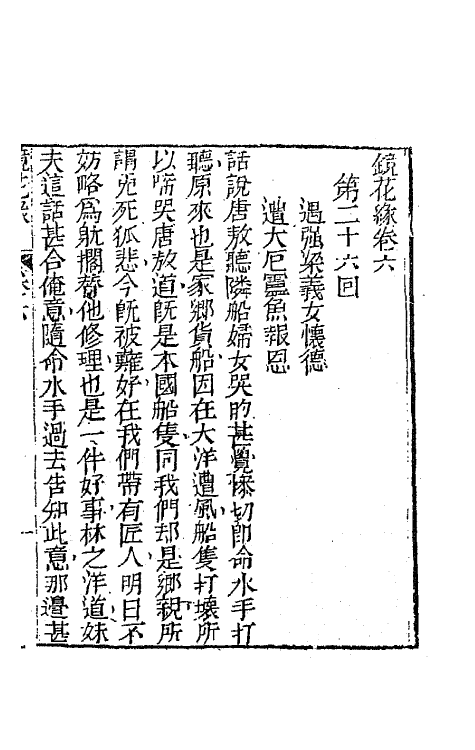 鏡花緣卷六
第二十六回
遇強梁義女懷德
遭大厄靈魚報恩
話說唐敖聽隣船婦女哭的甚覺慘切卽命水手打
聽原來也是家鄉貨船因在大洋遭風船隻打壞所
以啼哭唐敖道旣是本國船隻同我們却是鄉親所
謂兎死狐悲今旣被難好在我們帶有匠人明日不
妨略爲躭擱替他修理也是一件好事林之洋道妹
夫這話甚合俺意隨命水手過去告知此意那邉甚